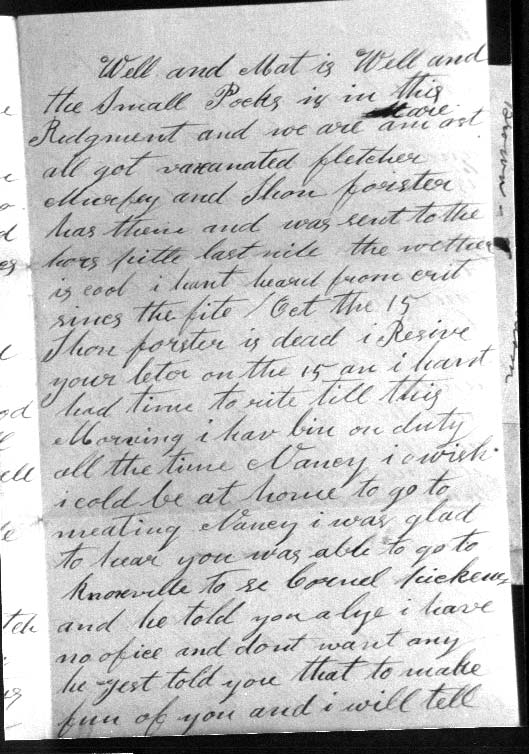 Well and Mat is Well and
the Small Pocks is in this
Redgment and we are am ost
all got vaxanated fletcher
Murfey and Thon forister
has them and was sent to the
hors pittle last nite the wether
is cool i hant heard from crit
sines the fite / Oct the 15
Thon forster is dead i Resive
your letor on the 15 an i hant
had time to rite till this
Morning i hav bin on duty
all the time Nancy i wish
i cold be at home to go to
meating Nancy i was glad
to hear you was able to go to
Knoxville to se Cornel
and he told you a lye i have
no ofice and dont want any
he yest told you that to make
fun of you and i will tell